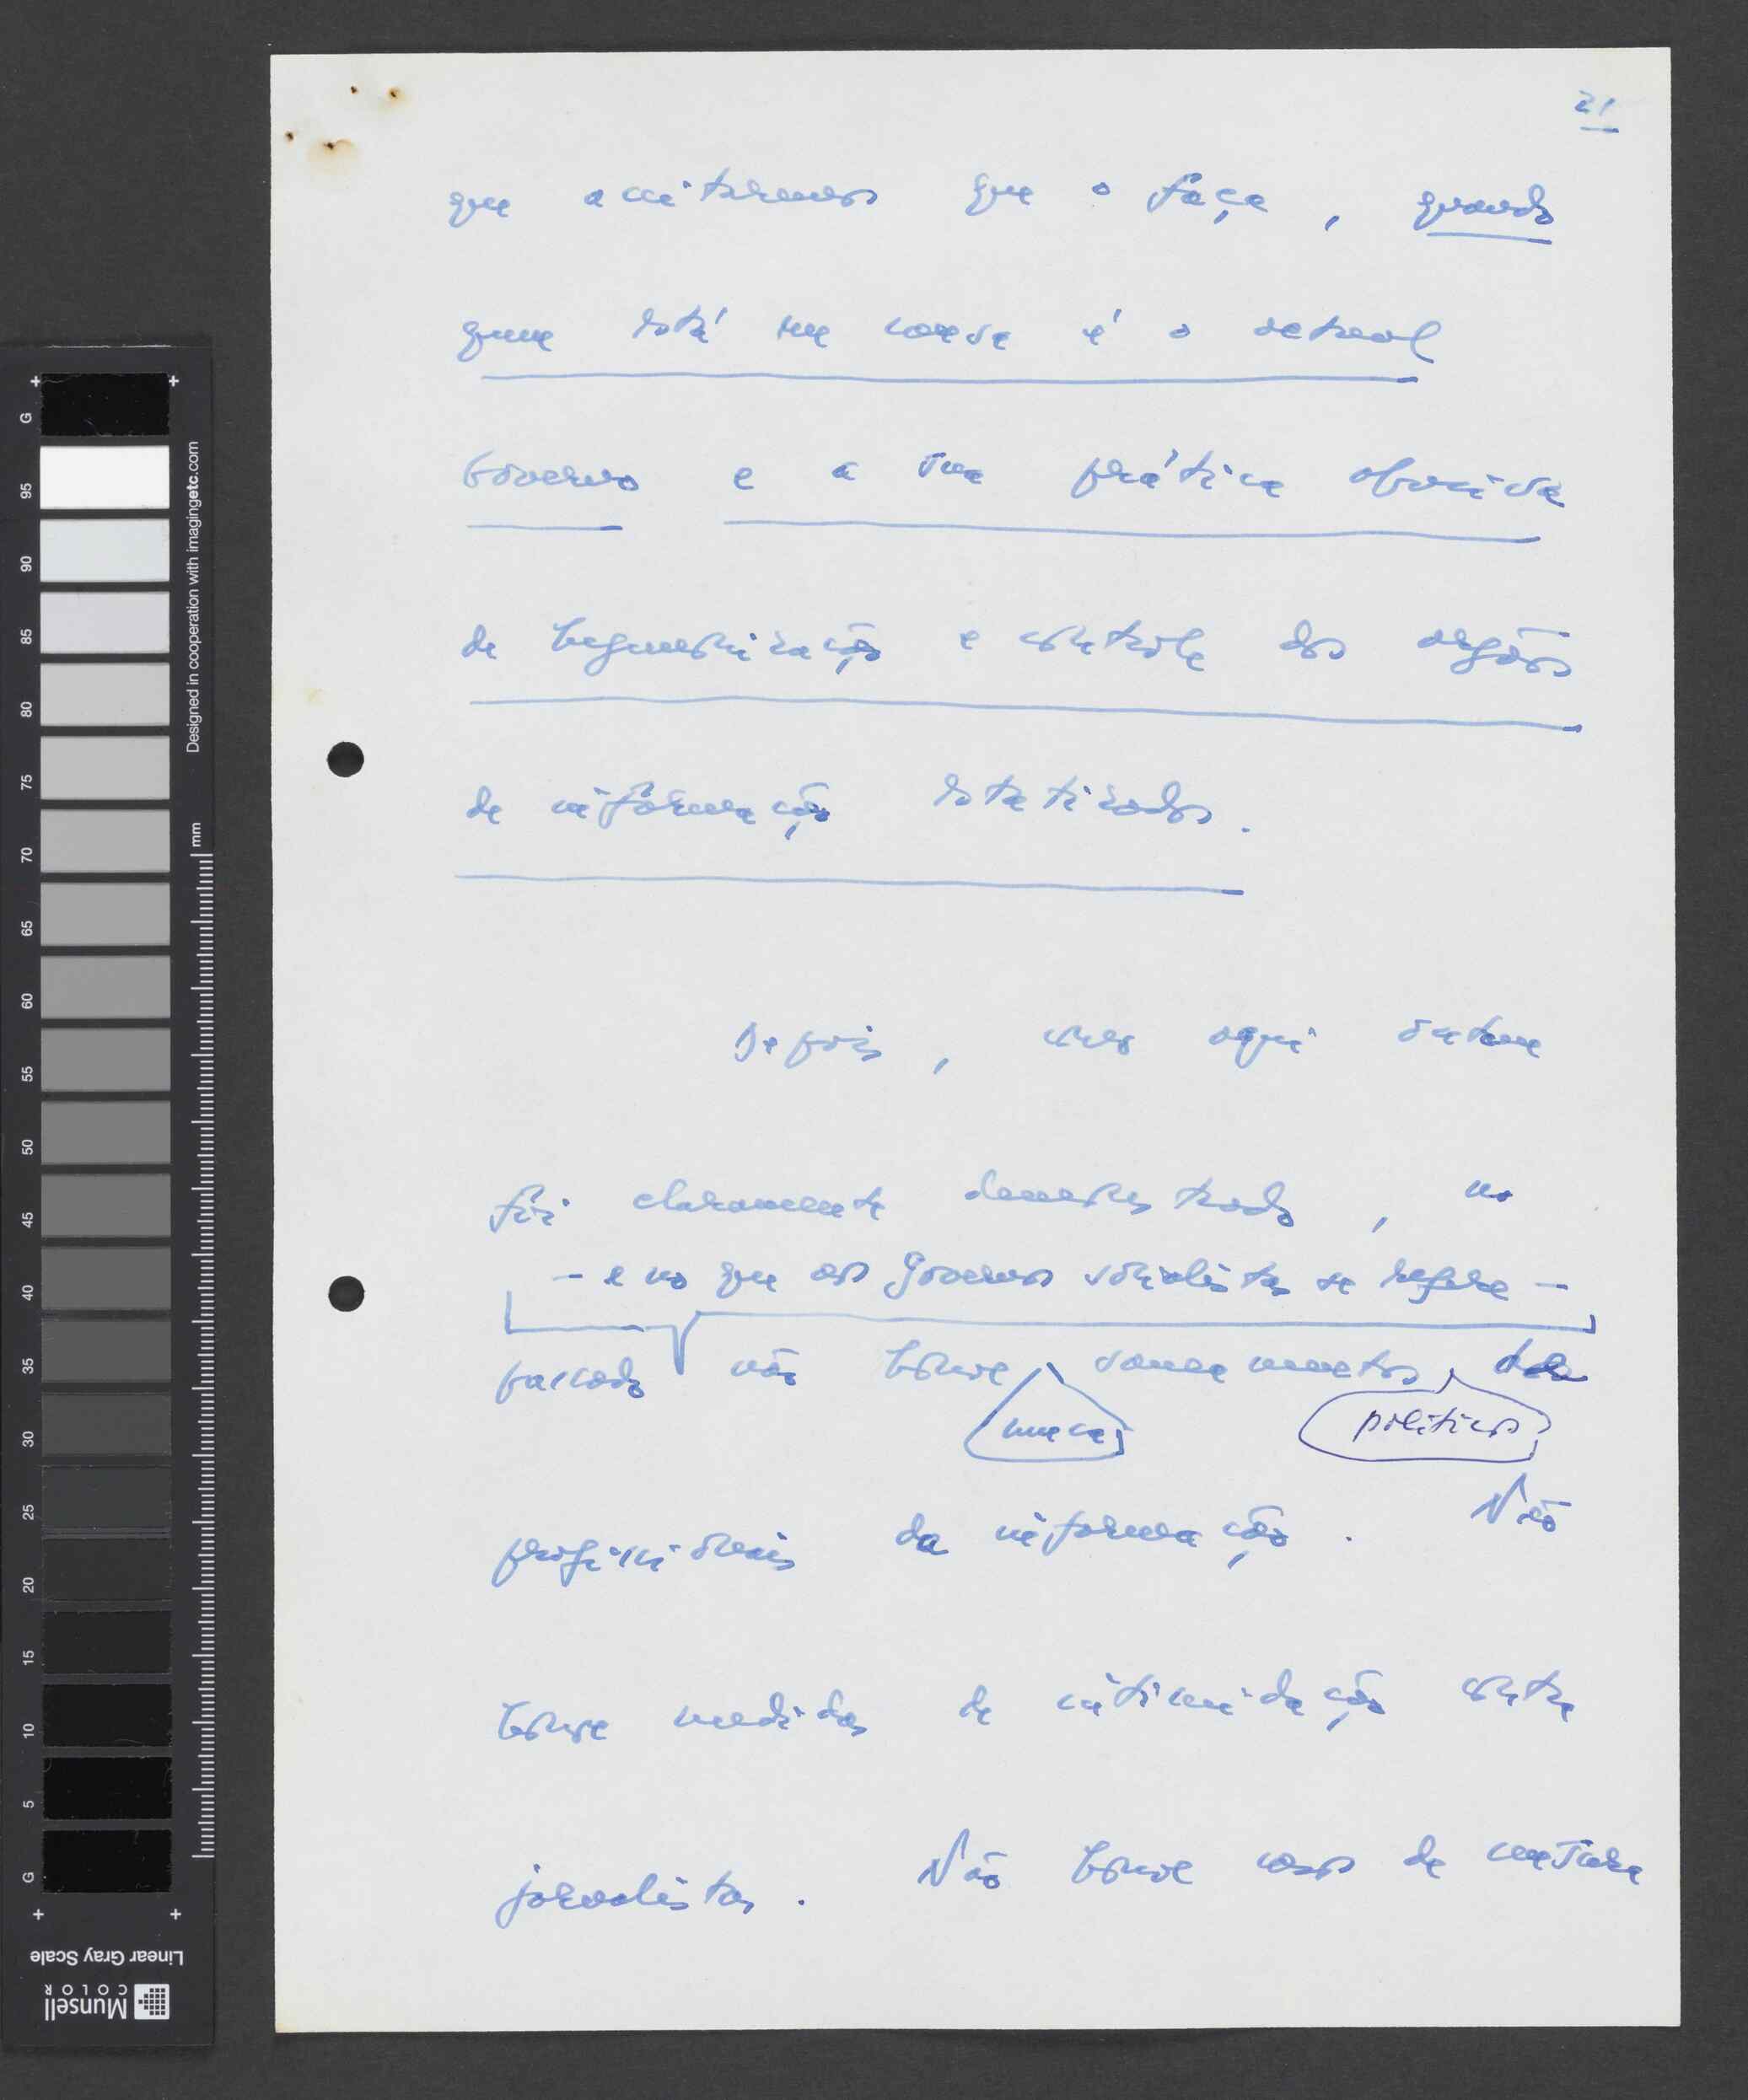 21
que aceitaremos que o faça, quando
quem está em causa é o actual
Governo e a sua prática abusiva
de hegemonização e controle dos orgãos
de informação estatizados.
Depois, como aqui ontem
foi claramente demonstrado, no
- e no que aos Governos socialistas se refere -
passado não houve saneamentos
nunca
políticos
profissionais da informação. Não
houve medidas de intimidação contra
jornalistas. Não houve casos de censura
G
95
90
85
80
75
70
65
60
55
50
45
40
35
30
25
20
15
10
5
G
Designed in cooperation with imagingetc.com
mm
Linear Gray Scale
Munsell
COLOR